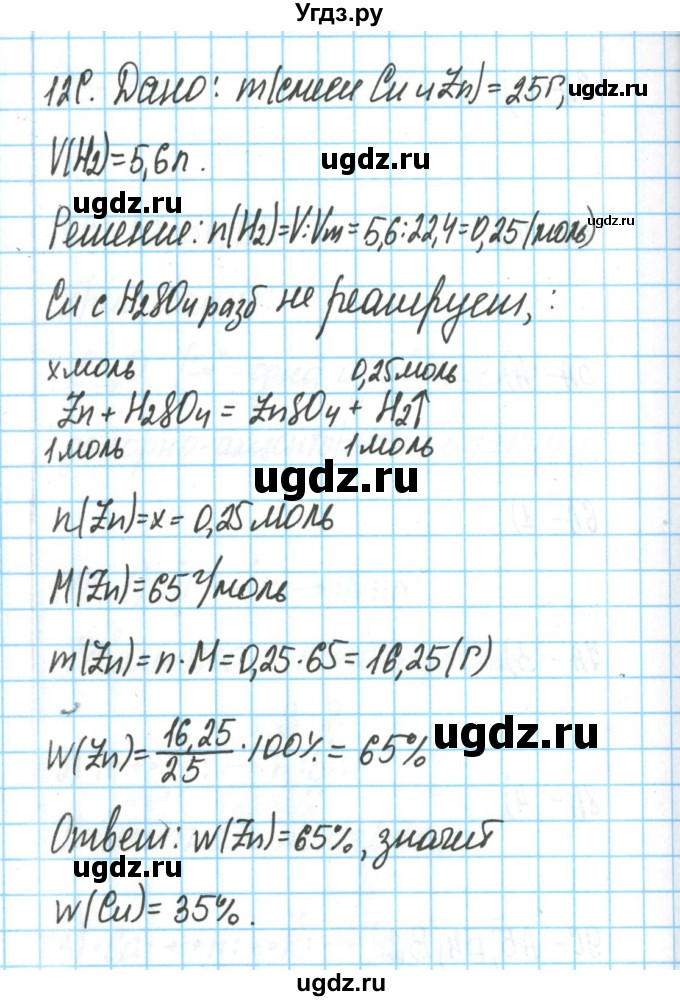 Угдз.ру
12С. Дано: m(смеси Cu и Zn) = 25г,
ugdz.ru
V(H2)=5,6л.
ugdz.ru
ugdz.ru
ugdz.ru
Решение: n(H2)=V:Vm=5,6:22,4=0,25(моль)
Cu с H2SO4 разб не реагирует, :
x моль 0,25 моль
Zn + H2SO4 = ZnSO4 + H2↑
1 моль 1 моль
ugdz.ru
n(Zn)=x=0,25 моль
M(Zn)=65 г/моль
m(Zn)=n·M=0,25·65=16,25(г)
ugdz.ru
W(Zn)=16,25/25·100%=65%
Ответ: w(Zn)=65%, значит
ugdz.ru
ugdz.ru
w(Cu)=35%.
ugdz.ru